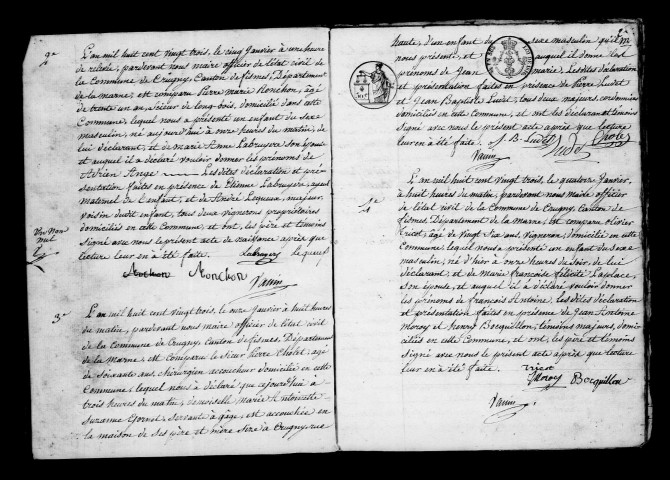 2e
L'an mil huit cent vingt trois, le cinq Janvier à une heure
de relevée, pardevant nous maire officier de l'état civil de
la Commune de Crugny, Canton de fismes, Département
de la marne, est comparu Pierre marie Monchon, âgé
de trente un ans, scieur de long-bois, domicilié dans cette
Commune, lequel nous a présenté un enfant du sexe
masculin, né aujourd'hui à onze heures du matin, de
lui déclarant, et de marie Anne Labruyere son épouse
et auquel il a déclaré vouloir donner les prénoms de
Adrien Ange. Les dites déclaration et pré-
sentation faites en présence de Etienne Labruyere, ayeul
maternel de l'enfant, et de André Lequeux, majeur
voisin dudit enfant, tous deux vignerons propriétaires
domiciliés en cette Commune, et ont, les père et témoins
signé avec nous le présent acte de naissance après que
lecture leur en a été faite. Labruyere
nul
Monchon
Vanin
3e
L'an mil huit cent vingt trois, le onze Janvier à huit heures
du matin, pardevant nous maire officier de l'état civil
de la Commune de Crugny, Canton de fismes, Département
de la Marne, est comparu le sieur Pierre Cholet, âgé
de soixante ans, chirurgien accoucheur domicilié en cette
Commune, lequel nous a déclaré que cejourd'hui à
trois heures du matin, demoiselle marie Antoinette
suzanne servante à gage, est accouchée en
la maison de ses père et mère sise à Crugny, rue
haute, d'un enfant du sexe masculin qu'il
nous présente, et auquel il donne les
prénoms de Jean marie. Les dites déclaration
et présentation faites en présence de Pierre Ludet
et Jean Baptiste Ludet, tous deux majeurs,
domiciliés en cette commune, et ont les déclarant et témoins
signé avec nous le présent acte après que lecture
leur en a été faite. J. B. Ludet
Vanin
4e
L'an mil huit cent vingt trois, le quatorze Janvier,
à huit heures du matin, pardevant nous maire officier
de l'état civil de la Commune de Crugny, Canton de
fismes, Département de la Marne, est comparu olivier
Tricot, âgé de vingt six ans, vigneron, domicilié en cette
Commune, lequel nous a présenté un enfant du sexe
masculin, né d'hier à onze heures du soir, de lui
déclarant, et de Marie françoise félicité Laplace,
son épouse, et auquel il a déclaré vouloir donner
les prénoms de françois Antoine. Les dites déclaration
et présentation faites en présence de Jean Antoine
Moroy et henry Bocquillon, témoins majeurs, domi-
ciliés en cette Commune, et ont, les père et témoins
signé avec nous le présent acte après que lecture
leur en a été faite. Tricot
Moroy Bocquillon
Vanin